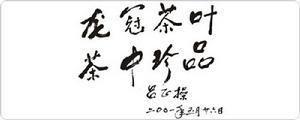 龙冠茶叶
茶中珍品
吕正操
二〇〇一年五月十六日